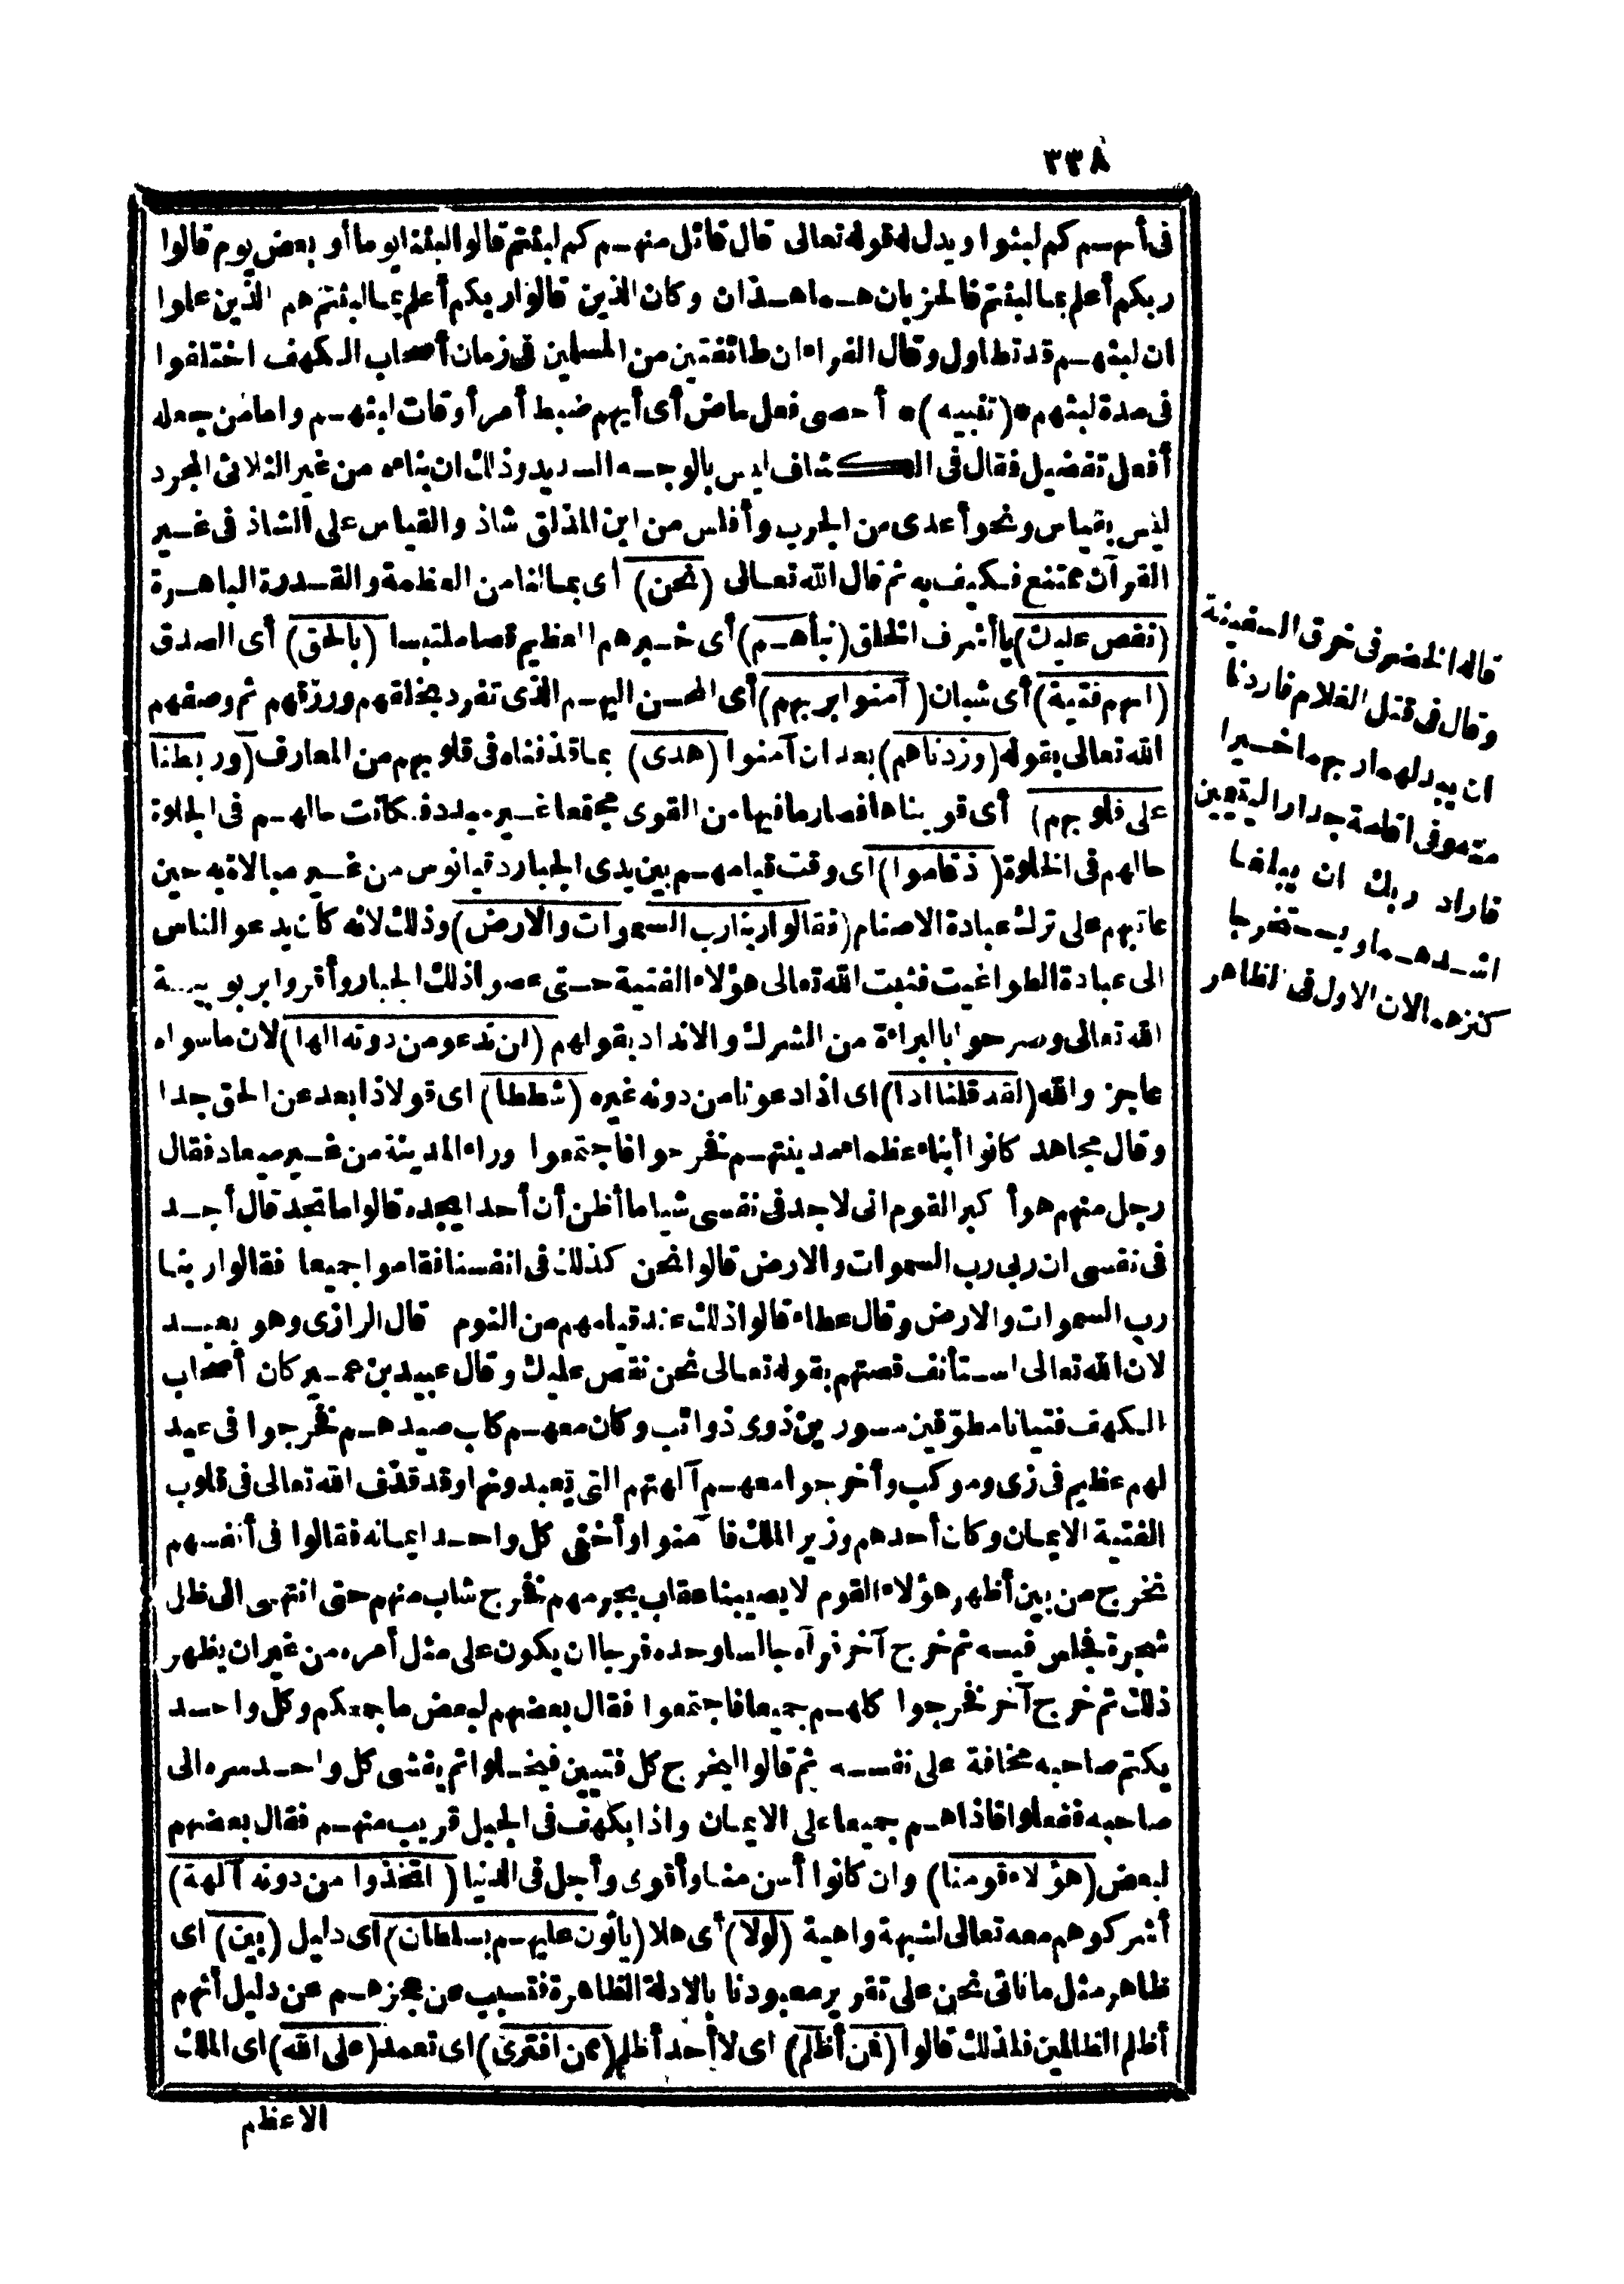 ٣٣٨
فى أمرهم كم لبثوا ويدل له قوله تعالى قال قائل منهم كم لبثتم قالوا لبثنا يوما أو بعض يوم قالوا
ربكم أعلم بما لبثتم فالحزبان هما هذان وكان الذين قالوا ربكم أعلم بما لبثتم هم الذين علوا
ان لبثهم قد تطاول وقال الفراء ان طائفتين من المسلمين فى زمان أصحاب الكهف اختلفوا
فى مدة لبثهم * (تنبيه) * أحصى فعل ماض أى أيهم ضبط أمر أوقات لبثهم واما من جعله
أفعل تفضيل فقال فى الكشاف ليس بالوجه السديد وذلك ان بناءه من غير الثلاثى المجرد
ليس بقياس ونحو أعدى من الجرب وأفلس من ابن المذلق شاذ والقياس على الشاذ فى غير
القرآن ممتنع فكيف به ثم قال الله تعالى (نحن) أى بمالنا من العظمة والقدرة الباهرة
(نقص عليك) يا أشرف الخلق (نبأهم) أى خبرهم العظيم قصا ملتبسا (بالحق) أى الصدق
(انهم فتية) أى شبان (آمنوا بربهم) أى المحسن اليهم الذى تفرد بخلقهم ورزقهم ثم وصفهم
الله تعالى بقوله (وزدناهم) بعد ان آمنوا (هدى) بما قذفناه فى قلوبهم من المعارف (وربطنا
على قلوبهم) أى قويناها فصار ما فيها من القوى مجتمعا غير مبدد فكانت حالهم فى الجلوة
حالهم فى الخلوة (اذ قاموا) اى وقت قيامهم بين يدى الجبار دقيانوس من غير مبالاة به حين
عاتبهم على ترك عبادة الاصنام (فقالوا ربنا رب السموات والارض) وذلك لانه كان يدعو الناس
الى عبادة الطواغيت فثبت الله تعالى هؤلاء الفتية حتى عصوا ذلك الجبار وأقروا بربوبية
الله تعالى وصرحوا بالبراءة من الشرك والانداد بقولهم (لن ندعو من دونه الها) لان ما سواه
عاجز والله (لقد قلنا اذا) اى اذا دعونا من دونه غيره (شططا) اى قولا ذا بعد عن الحق جدا
وقال مجاهد كانوا أبناء عظماء مدينتهم فخرجوا فاجتمعوا وراء المدينة من غير ميعاد فقال
رجل منهم هو أكبر القوم انى لاجد فى نفسى شيا ما أظن أن أحدا يجده قالوا ما تجد قال أجد
فى نفسى ان ربى رب السموات والارض قالوا نحن كذلك فى انفسنا فقاموا جميعا فقالوا ربنا
رب السموات والارض وقال عطاء قالوا ذلك عند قيامهم من النوم قال الرازى وهو بعيد
لان الله تعالى استأنف قصتهم بقوله تعالى نحن نقص عليك وقال عبيد بن عمير كان أصحاب
الكهف فتيانا مطوّقين مسورين ذوى ذوائب وكان معهم كلب صيدهم فخرجوا فى عيد
لهم عظيم فى زى وموكب وأخرجوا معهم آلهتهم التى يعبدونها وقد قذف الله تعالى فى قلوب
الفتية الايمان وكان أحدهم وزير الملك فآمنوا وأخفى كل واحد ايمانه فقالوا فى أنفسهم
نخرج من بين أظهر هؤلاء القوم لا يصيبنا عقاب بجرمهم فخرج شاب منهم حتى انتهى الى ظل
شجرة فجلس فيه ثم خرج آخر فرآه جالسا وحده فرجا ان يكون على مثل أمره من غير ان يظهر
ذلك ثم خرج آخر فخرجوا كلهم جميعا فاجتمعوا فقال بعضهم لبعض ما جمعكم وكل واحد
يكتم صاحبه مخافة على نفسه ثم قالوا ليخرج كل فتيين فيخلوا ثم يفشى كل واحد سره الى
صاحبه ففعلوا فاذا هم جميعا على الايمان واذا بكهف فى الجبل قريب منهم فقال بعضهم
لبعض (هؤلاء قومنا) وان كانوا أسن منا وأقوى وأجل فى الدنيا (اتخذوا من دونه آلهة)
أشركوهم معه تعالى لشبهة واهية (لولا) أى هلا (يأتون عليهم بسلطان) اى دليل (بين) اى
ظاهر مثل ما نأتى نحن على تقرير معبودنا بالادلة الظاهرة فتسبب عن عجزهم عن دليل أنهم
أظلم الظالمين فلذلك قالوا (فمن أظلم) اى لا أحد أظلم (ممن افترى) اى تعمد (على الله) اى الملك
الاعظم
قاله الخضر فى خرق السفينة
وقال فى قتل الغلام فاردنا
ان يبدلهما ربهما خيرا
منه وفى اقامة جدار اليتيمين
فاراد ربك ان يبلغا
اشدهما ويستخرجا
كنزهما لان الاول فى الظاهر